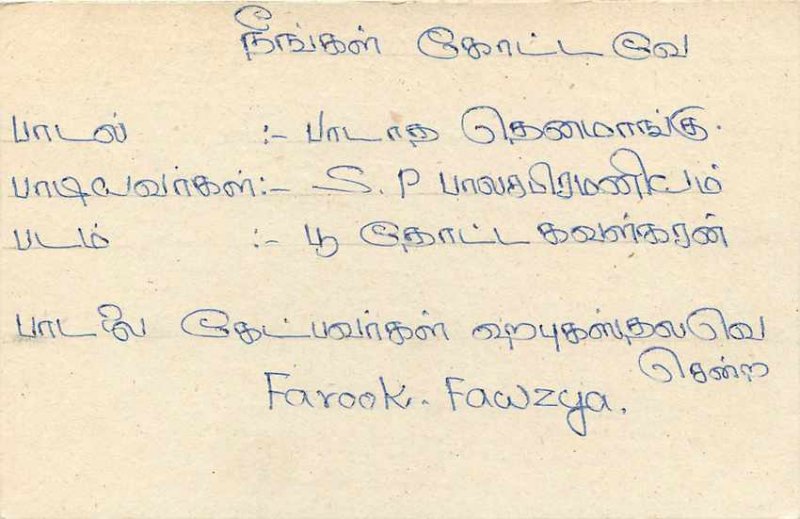 நீங்கள் கோட்டவே
பாடல் :- பாடாத தெனமாங்கு.
பாடியவர்கள்:- S. P பாலசுபிரமணியம்
படம் :- பூ தோட்ட கவள்கரன்
பாடலை கேட்பவர்கள்
சென்ற
Farook. Fawzya.